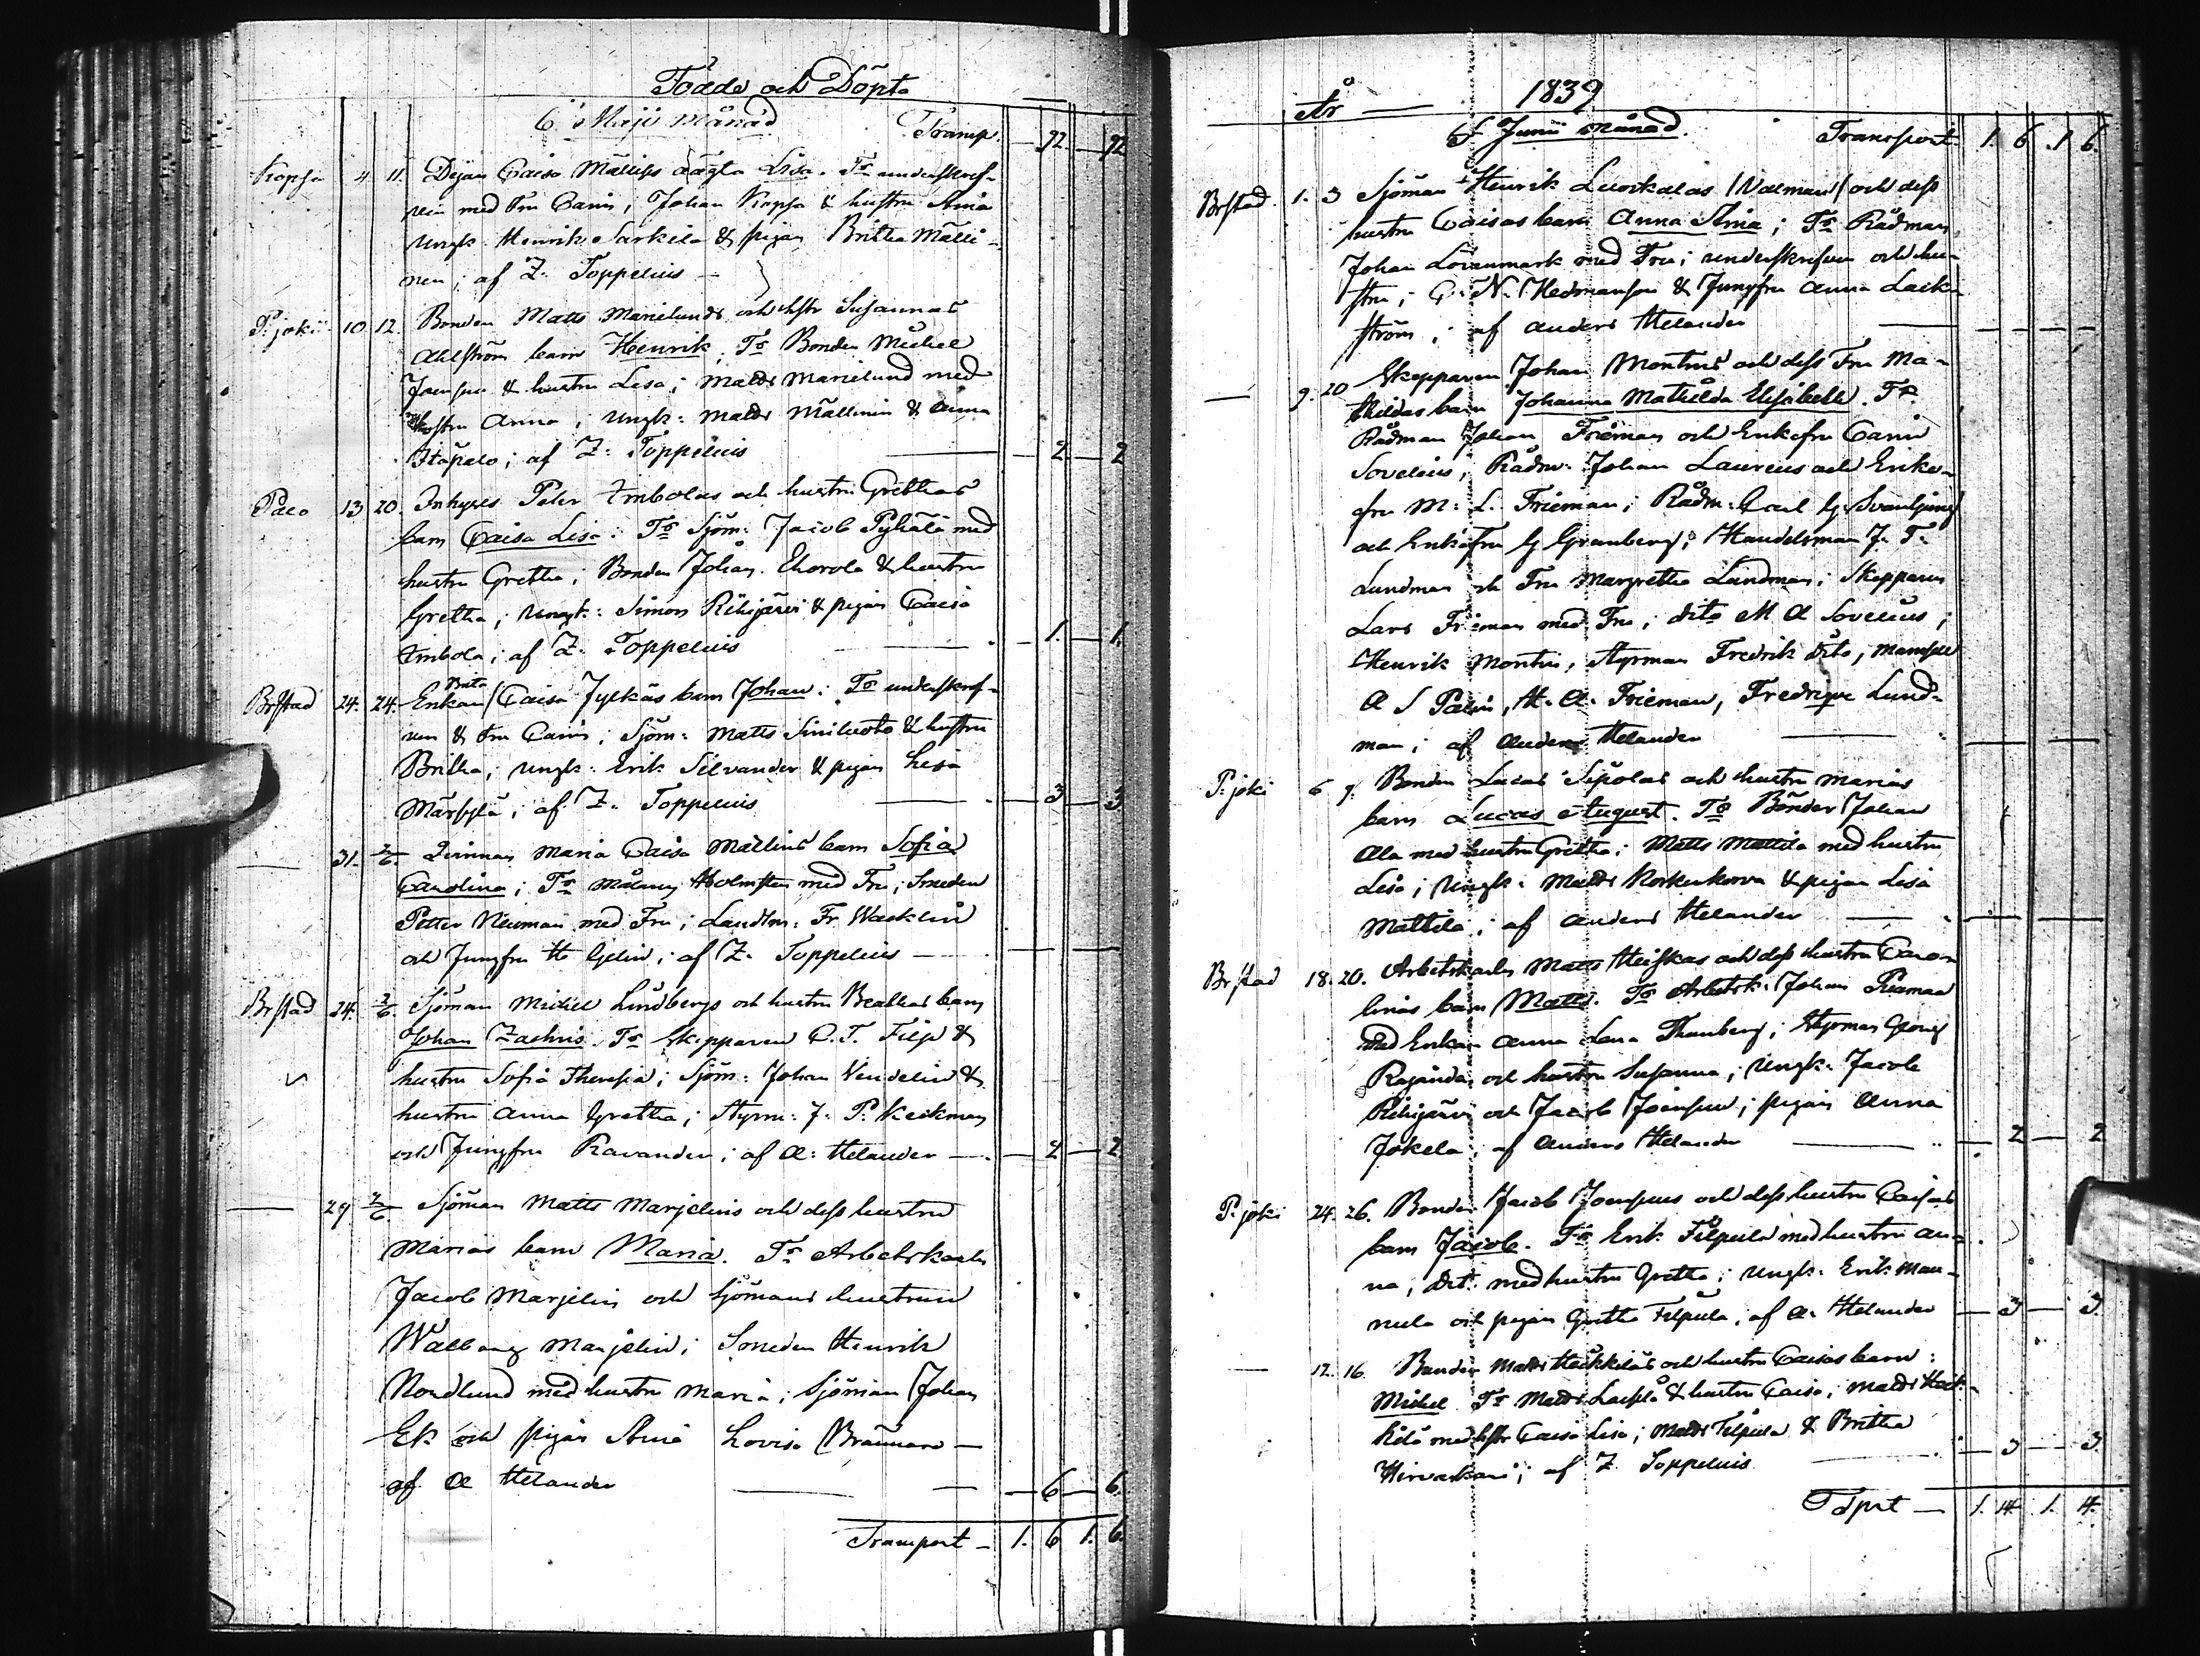 Födde och Döpte
6 Maji månad Transp. 72 72
Kopsa 4 11. Pigan Caisa Mällises oägta Lisa. Ts underskref-
ven med Fru Carin, Johan Kopsa & hustru Stina
Ungk. Henrik Sarkila & pigan Britha Mälli-
nen; af Z. Toppelius
P.joki 10 12. Bonden Matts Marielunds och hstr Susannas
Ahlström barn Henrik; Ts Bonden Michel
Joensuu & hustru Lisa; Matts Marielund med
Hustru Anna; Ungk: Matts Mällinen & Anna
Itäpalo; af Z: Toppelius 2 2
Palo 13 20. Inhyses Pehr Imbolas och hustru Grethas
barn Caisa Lisa. Ts Sjöm: Jacob Pyhälä med
hustru Gretha; Bonden Johan Ehorola & hustru
Gretha; Ungk: Simon Rihijärvi & pigan Caisa
Imbola; af Z. Toppelius 1. 1.
Brstad 24. 24. Enkan Caisa Jylkäs barn Johan. Ts underskref-
ven & Fru Carin; Sjöm: Matts Siniluoto & hustru
Britha; Ungk. Erik Silvander & pigan Lisa
Märsylä; af Z. Toppelius 3 3
31. 2/6. Qvinnan Maria Caisa Mällins barn Sofia
Carolina; Ts Målaren Holmsten med Fru; Smeden
Petter Neuman med Fru; Landtm: Fr Wacklin
och Jungfru H Gelin; af Z. Toppelius
Brstad 24. 2/6. Sjöman Michel Lindbergs och hustru Beathas barn
Johan Zachris. Ts Skepparen C. F. Filp &
hustru Sofia Theresia; Sjöm: Johan Vendelin &
hustru Anna Gretha; Styrm: J. P. Keckman
och Jungfru Ravander; af A: Helander 2 2
29 2/6. Sjöman Matts Marjelius och dess hustru
Marias barn Maria. Ts Arbetskarlen
Jacob Marjelin och sjömans hustrun
Wallborg Marjelin; Smeden Henrik
Nordlund med hustru Maria; Sjöman Johan
Ek och pigan Stina Lovisa Brännare
af A Helander 6 6.
Transport 1. 6 1. 6.
År 1839
6 Junii månad. Transport 1. 6 1 6.
Brstad. 1. 3 Sjöman Henrik Luoskalas /Walman/ och dess
hustru Caisas barn Anna Stina; Ts Rådman
Johan Lövenmark med Fru; underskrefven och hu-
stru; C. N. Hedmansson & Jungfru Anna Lack-
ström; af Anders Helander
9. 20 Skepparen Johan Montins och dess Fru Ma-
thildas barn Johanna Mathilda Elisabeth. Ts
Rådman Johan Frieman och Enkefru Carin
Sovelius; Rådm: Johan Laurens och Enke-
fru M: L. Frieman; Rådm: Carl G. Svanljung
och Enkefru G Granberg; Handelsman J. F.
Lundman och Fru Margretha Lundman; Skepparen
Lars Frieman med Fru; dito M A Sovelius;
Henrik Montin, Styrman Fredrik dito, mamsell
A S Pacin, H. A. Frieman, Fredrique Lund-
man; af Anders Helander
P.joki 6 9. Bonden Lucas Sipolas och hustru Marias
barn Lucas August. Ts Bönder Johan
Ala med hustru Gretha; Matts Mattila med hustru
Lisa; Ungk: Matts Korkiakorva & pigan Lisa
Mattila; af Anders Helander
Brstad 18. 20. Arbetskarlen Matts Heiskas och dess hustru Caro-
linas barn Matts. Ts Arbetsk. Johan Piuman
med Enkan Anna Lena Thunberg; Styrman Georg
Rajander och hustru Susanna; Ungk. Jacob
Rihijärvi och Jacob Joensuu; pigan Anna
Jokela; af Anders Helander 2 2
P.joki 24. 26. Bonden Jacob Joensuus och dess hustru Caisas
barn Jacob. Ts Erik Filpula med hustru An-
na, dit. med hustru Gretha; Ungk. Erik Man-
nula och pigan Gretha Filpula; af A. Helander 3 3.
12. 16. Bonden Matts Heikkiläs och hustru Caisas barn:
Michel Ts Matts Laspä & hustru Caisa; Matts Heik-
kilä med hstr Caisa Lisa; Matts Filpula & Britha
Hirvaskari; af Z Toppelius 3 3.
Tspt 1. 14. 1. 14.